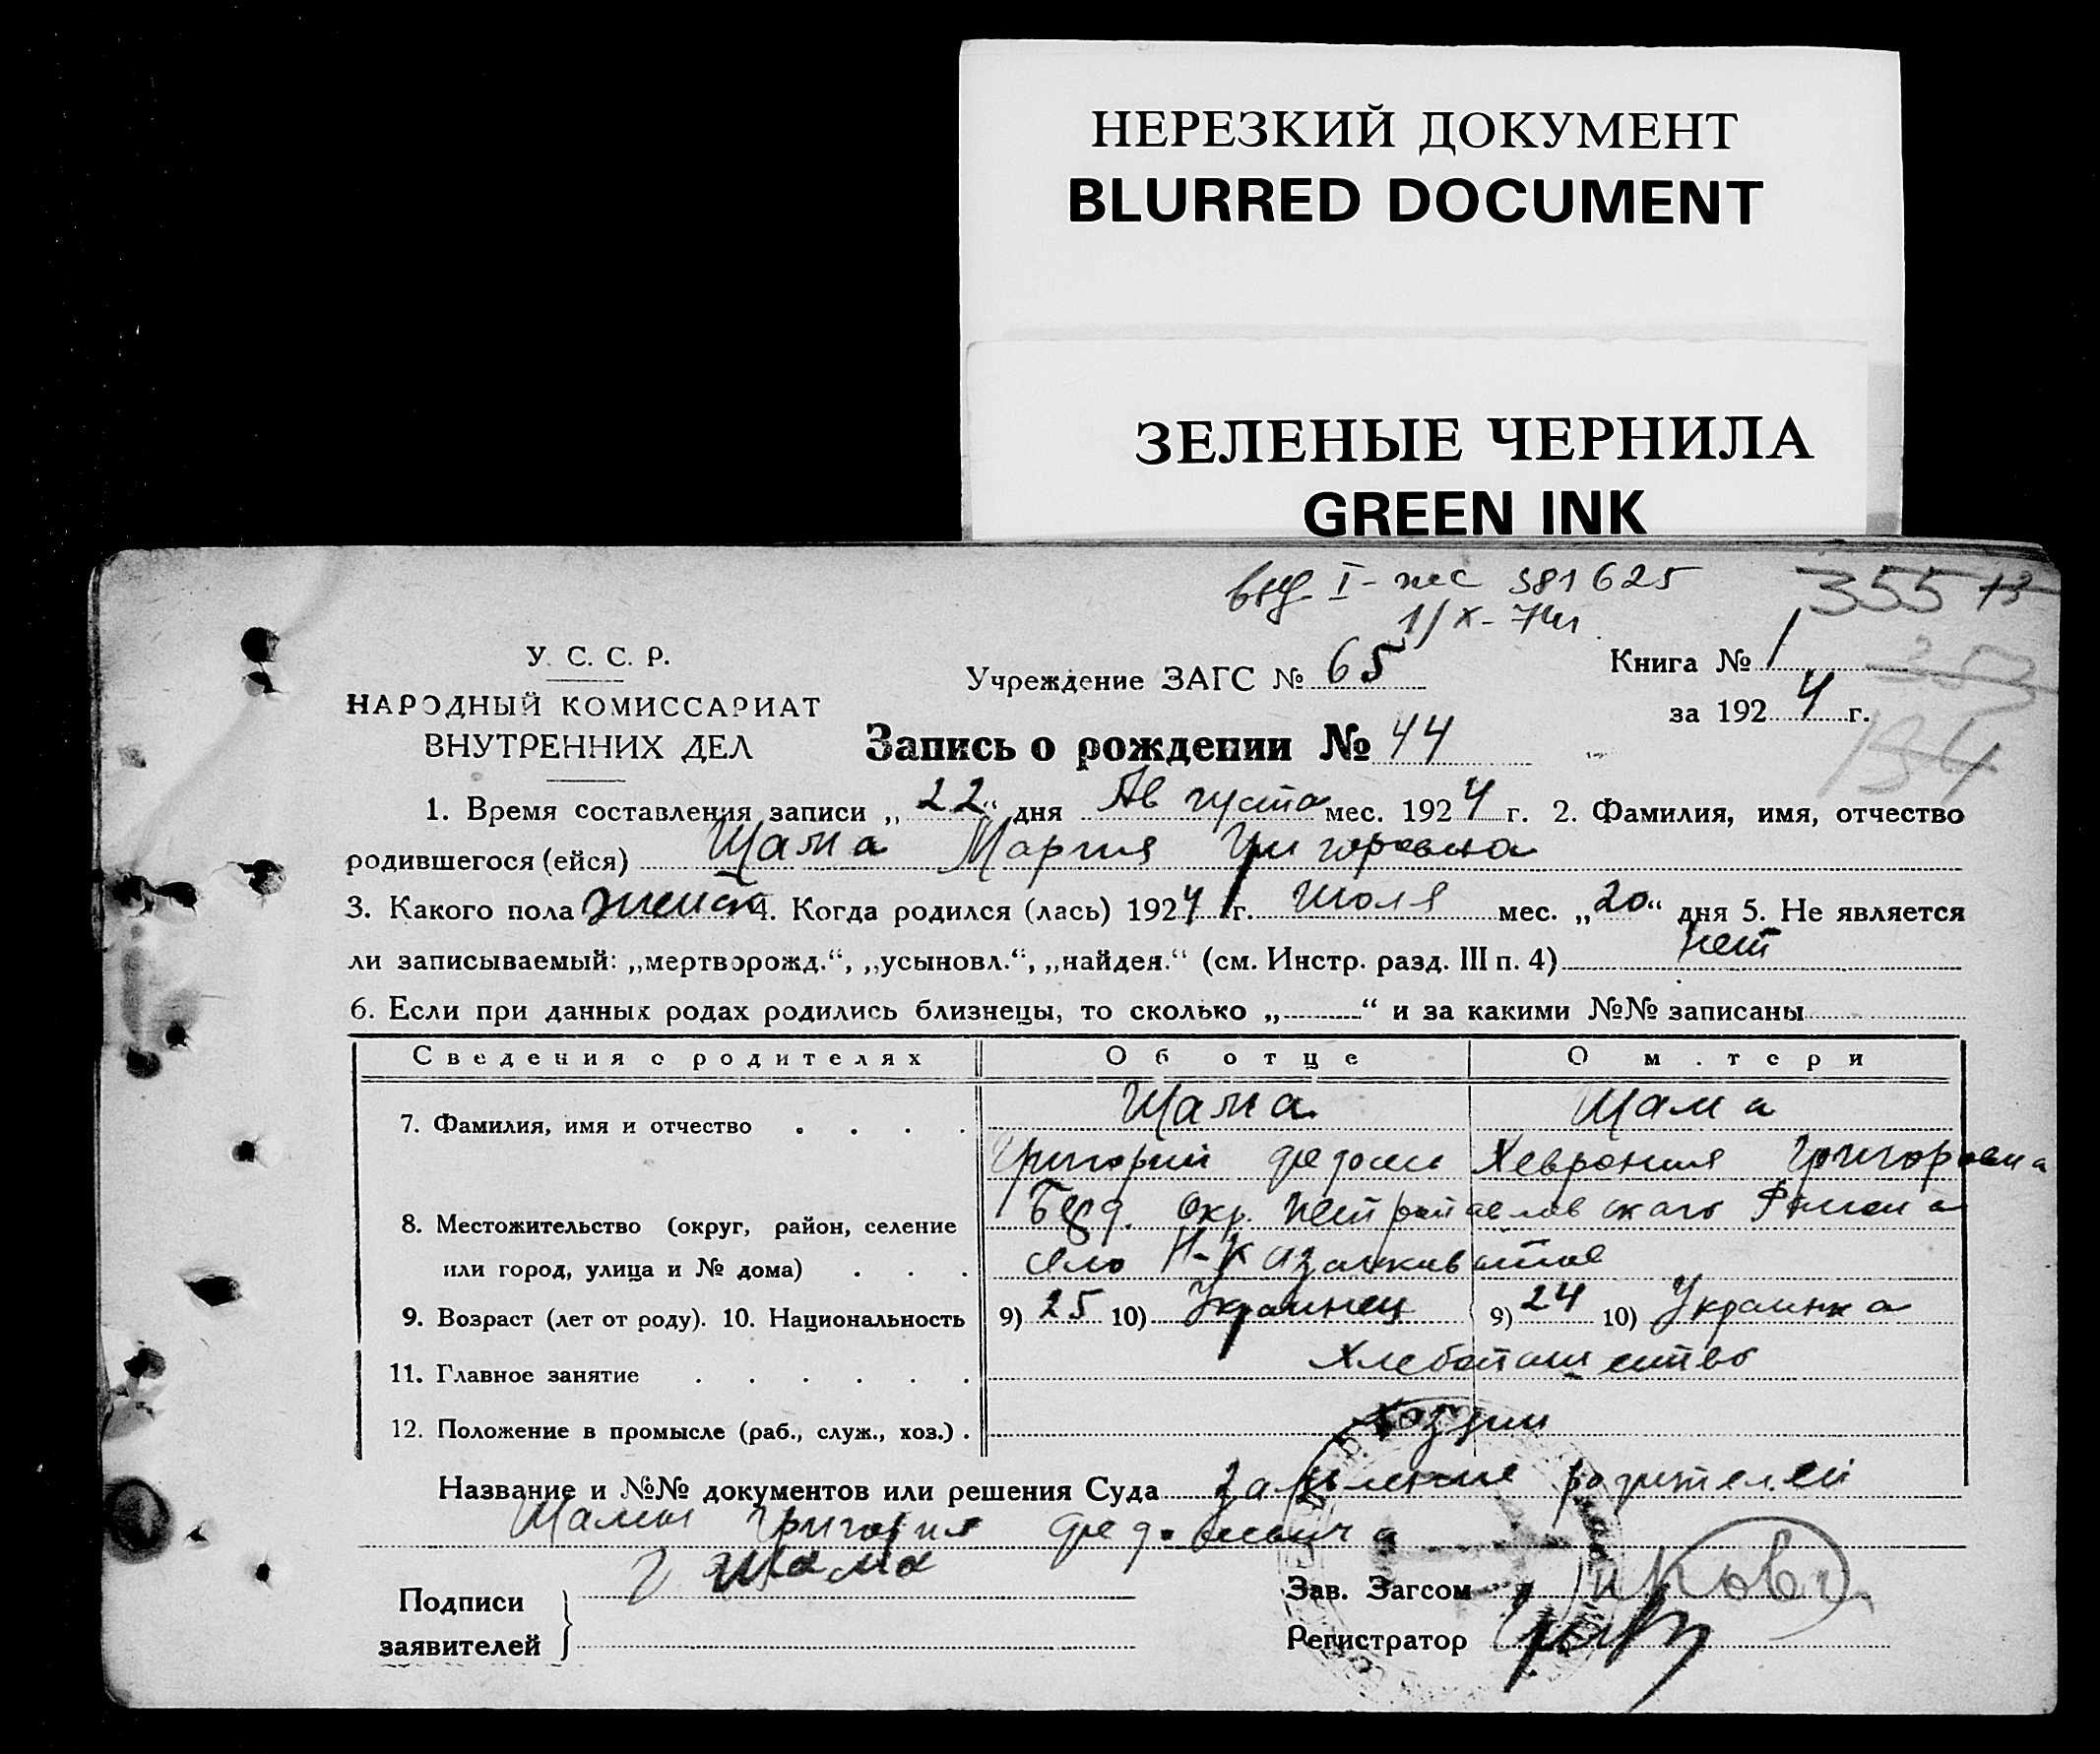 НЕРЕЗКИЙ ДОКУМЕНТ
BLURRED DOCUMENT
ЗЕЛЕНЫЕ ЧЕРНИЛА
GREEN INK
I- 381625
1/X-74г
355
У. С. С. Р.
НАРОДНЫЙ КОМИССАРИАТ
ВНУТРЕННИХ ДЕЛ
Учреждение ЗАГС № 65
Книга № 1
за 1924 г.
194
Запись о рождении № 44
1. Время составления записи „22“ дня Августа мес. 1924 г. 2. Фамилия, имя, отчество
родившегося (ейся) Шама Мария Григоровна
3. Какого пола женск 4. Когда родился (лась) 1924 г. июля мес. „20“ дня 5. Не является
ли записываемый: „мертворожд.“, „усыновл.“, „найден.“ (см. Инстр. разд. III п. 4) нет
6. Если при данных родах родились близнецы, то сколько „ “ и за какими №№ записаны
Сведения о родителях Об отце О м.тери
7. Фамилия, имя и отчество . . . . Шама Шама
Григорий Федосее Хеврония Григоровна
8. Местожительство (округ, район, селение Берд. Окр. Петропавловского Района
или город, улица и № дома) . . . село Н-К
9. Возраст (лет от роду). 10. Национальность 9) 25 10) Украинец 9) 24 10) Украинка
11. Главное занятие . . . . . . Хлебопашество
12. Положение в промысле (раб., служ., хоз.) . Хозяин
Название и №№ документов или решения Суда заявление родителей
Шамы Григория Федосеевича
Подписи
заявителей
Г Шама
Зав. Загсом
Регистратор